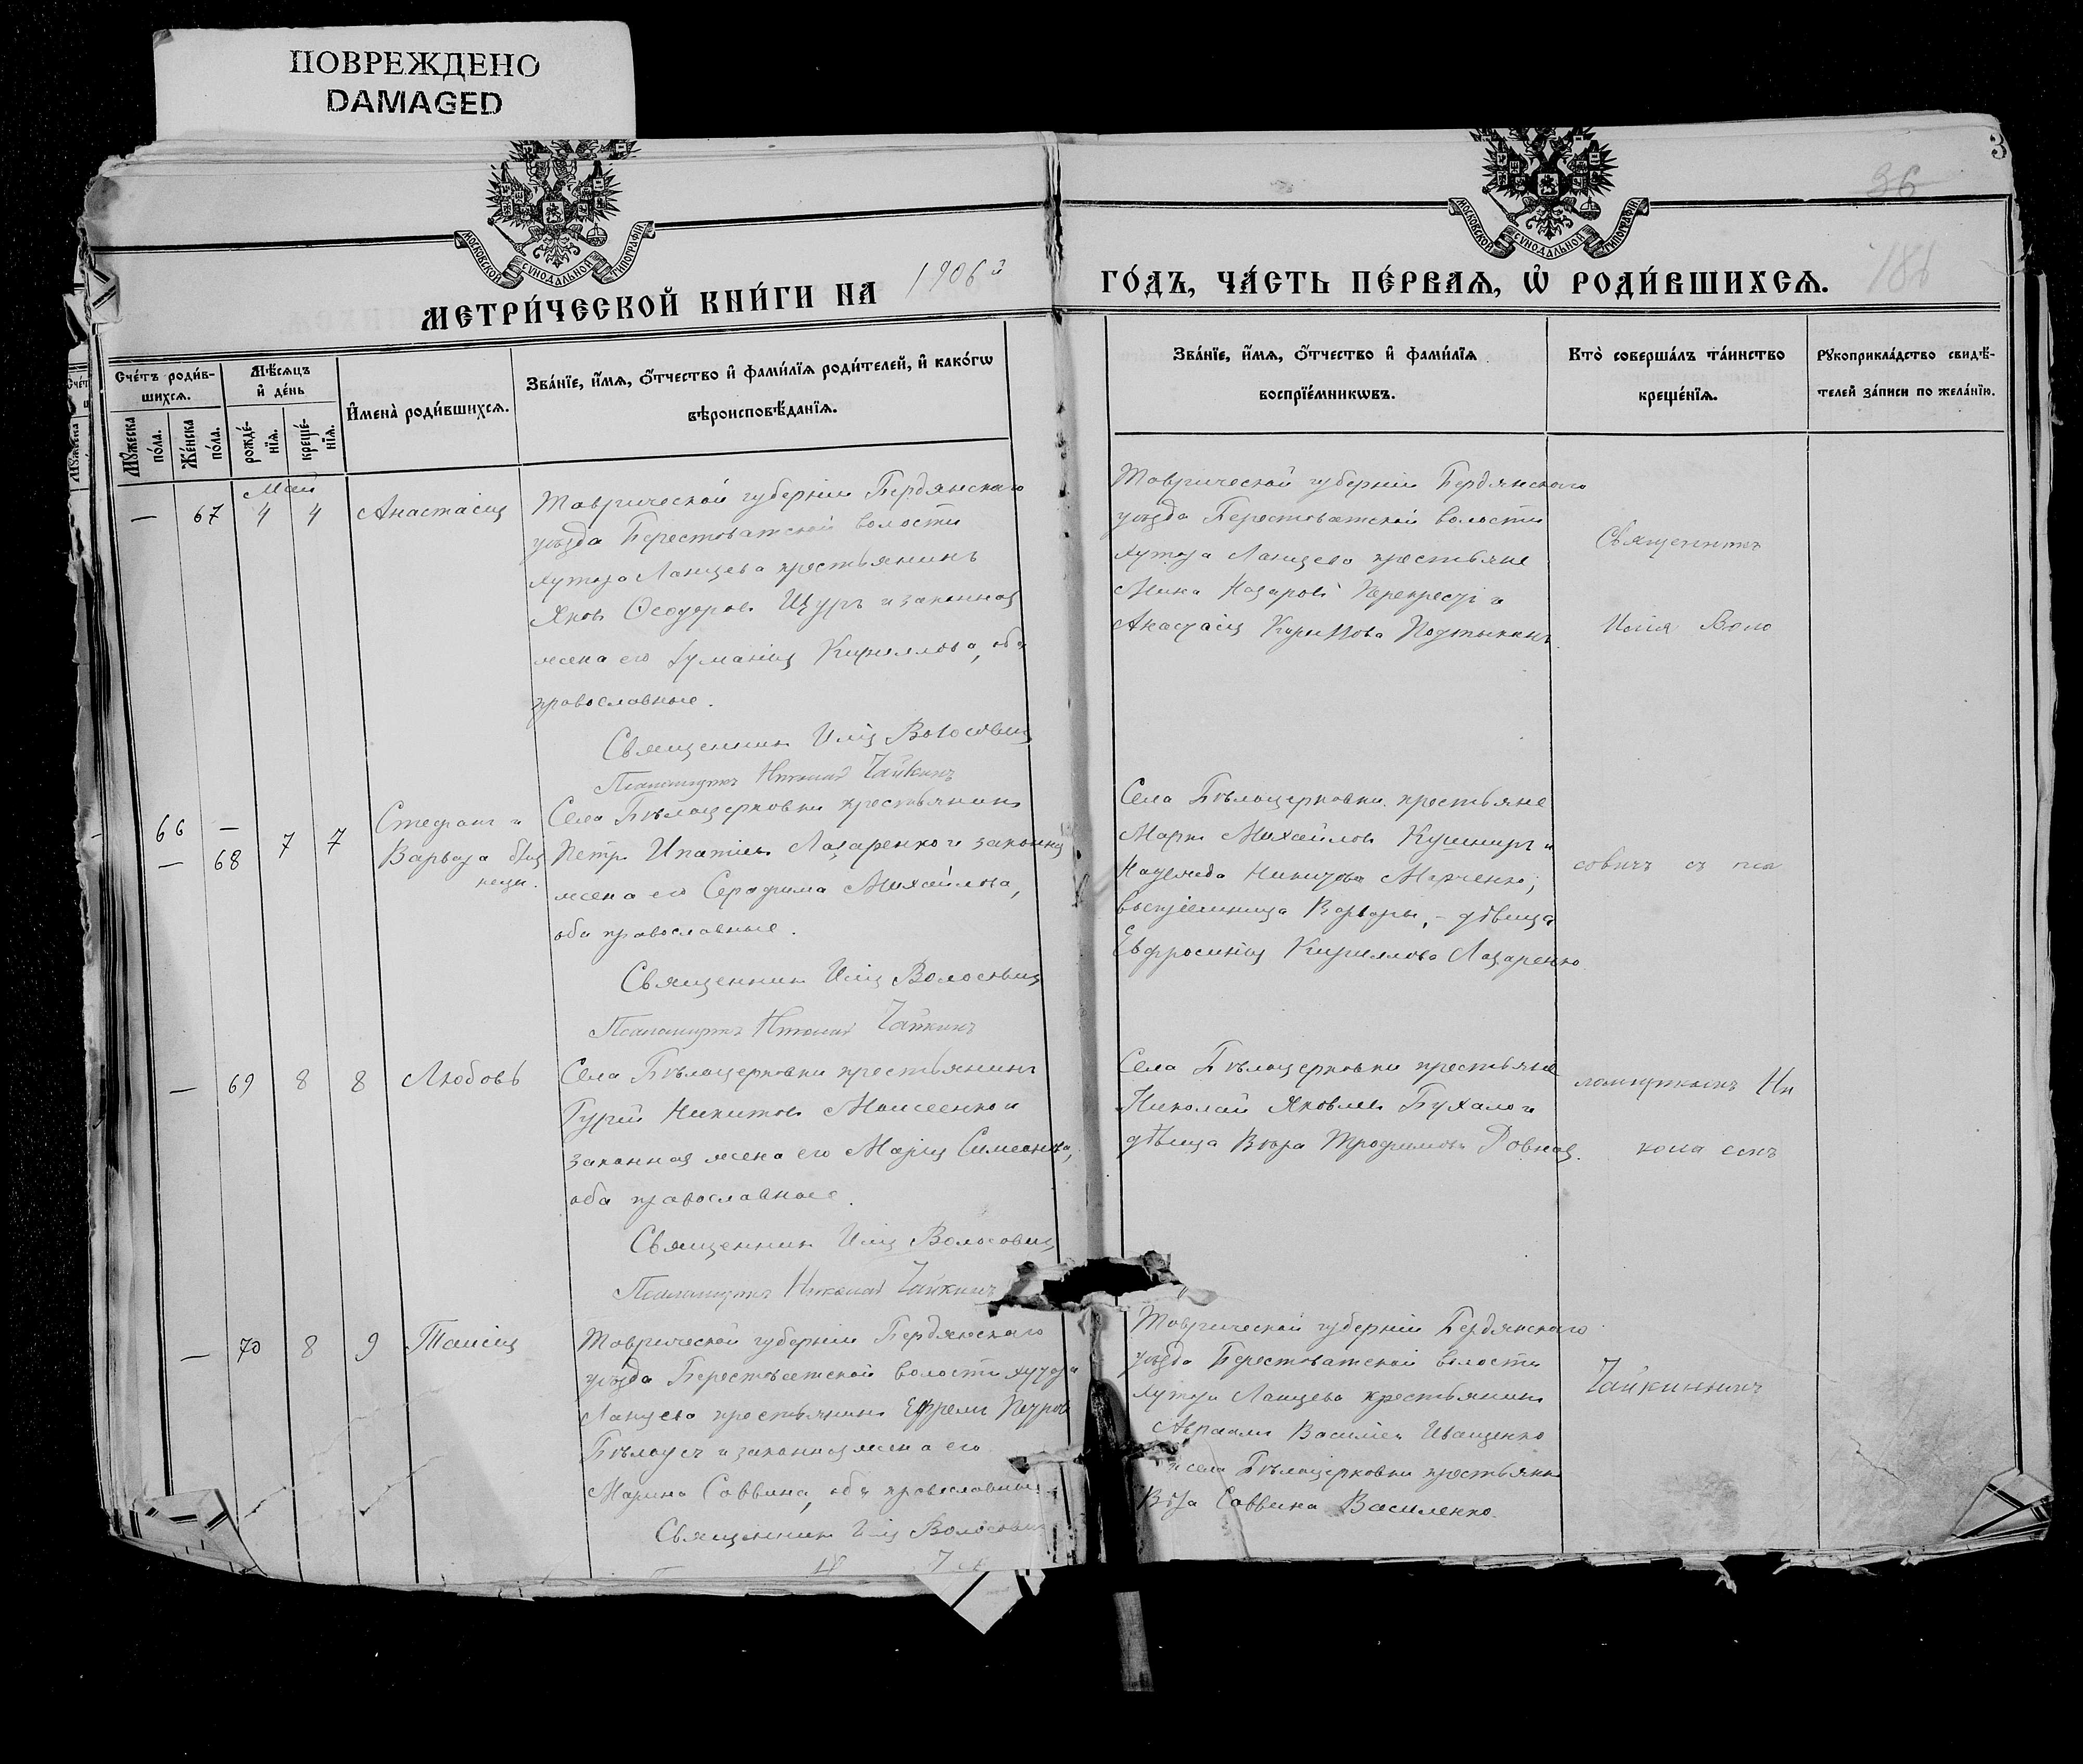 ПОВРЕЖДЕНО
DAMAGED
3
36
186
МОСКОВСКОЙ СѴНОДАЛЬНОЙ ТИПОГРАФІИ
МОСКОВСКОЙ СѴНОДАЛЬНОЙ ТИПОГРАФІИ
МЕТРИ́ЧЕСКОЙ КНИ́ГИ НА 1906й ГО́ДЪ, ЧА́СТЬ ПЕ́РВАѦ, Ѽ РОДИ́ВШИХСѦ.
Сче́тъ роди́в-
шихсѧ.
Мꙋ́жеска
по́ла.
Же́нска
по́ла.
Мѣ́сѧцъ
и҆ де́нь
рожде́-
нїѧ.
креще́-
нїѧ.
И҆мена̀ роди́вшихсѧ.
Зва́нїе, и҆́мѧ, ѻ҆́тчество и҆ фами́лїѧ роди́телей, и҆ како́гѡ
вѣроисповѣ́данїѧ.
Зва́нїе, и҆́мѧ, ѻ҆́тчество и҆ фами́лїѧ
воспрїе́мникѡвъ.
Кто̀ соверша́лъ та́инство
креще́нїѧ.
Рꙋкоприкла́дство свидѣ́-
телей за́писи по жела́нїю.
Май
— 67 4 4 Анастасія
Таврической губерніи Бердянскаго
уѣзда Берестоватской волости
хутора Ланцева крестьянинъ
Яковъ Ѳеодоровъ Щуръ и законная
жена его Кириллова, оба
православные.
Священникъ Илія Волосовичъ
Псаломщикъ Николай Чайкинъ
Таврической губерніи Бердянскаго
уѣзда Берестоватской волости
хутора Ланцева крестьяне
Мина Назаровъ и
Анастасія
66 —
— 68
7 7
Стефанъ и
Варвара близ
нецы.
Села Бѣлоцерковки крестьянинъ
Петръ Ипатіевъ Лазаренко и законная
жена его Серафима Михайлова,
оба православные.
Священникъ Илія Волосовичъ
Псаломщикъ Николай Чайкинъ
Села Бѣлоцерковки крестьяне
Маркъ Михайловъ Кушниръ и
Надежда Никитова Марченко;
воспріемница Варвары, – дѣвица
Евфросинія Кириллова Лазаренко
— 69 8 8 Любовь
Села Бѣлоцерковки крестьянинъ
Гурій Никитовъ Моисеенко и
законная жена его Марія Симеонова,
оба православные.
Священникъ Илія Волосовичъ
Псаломщикъ Николай Чайкинъ
Села Бѣлоцерковки крестьяне
Николай Яковлевъ Бухало и
дѣвица Вѣра Трофимова Ровная.
— 70 8 9 Таисія
Таврической губерніи Бердянскаго
уѣзда Берестоватской волости хутора
Ланцева крестьянинъ Ефремъ Петровъ
Бѣлоусъ и законная жена его
Марина Саввина, оба православные.
Священникъ Илія Волосовичъ
Таврической губерніи Бердянскаго
уѣзда Берестоватской волости
хутора Ланцева крестьянинъ
Авраамъ Василіевъ Иващенко
и села Бѣлоцерковки крестьянка
Вѣра Саввина Василенко.
Священникъ
Илія Воло
совичъ съ пса
ломщикомъ Ни
кола емъ
Чайкинымъ